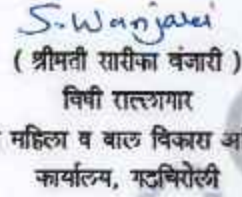 S. Wanjari
( श्रीमती सारीका वंजारी )
विधी सल्लागार
महिला व बाल विकास अ
कार्यालय, गडचिरोली